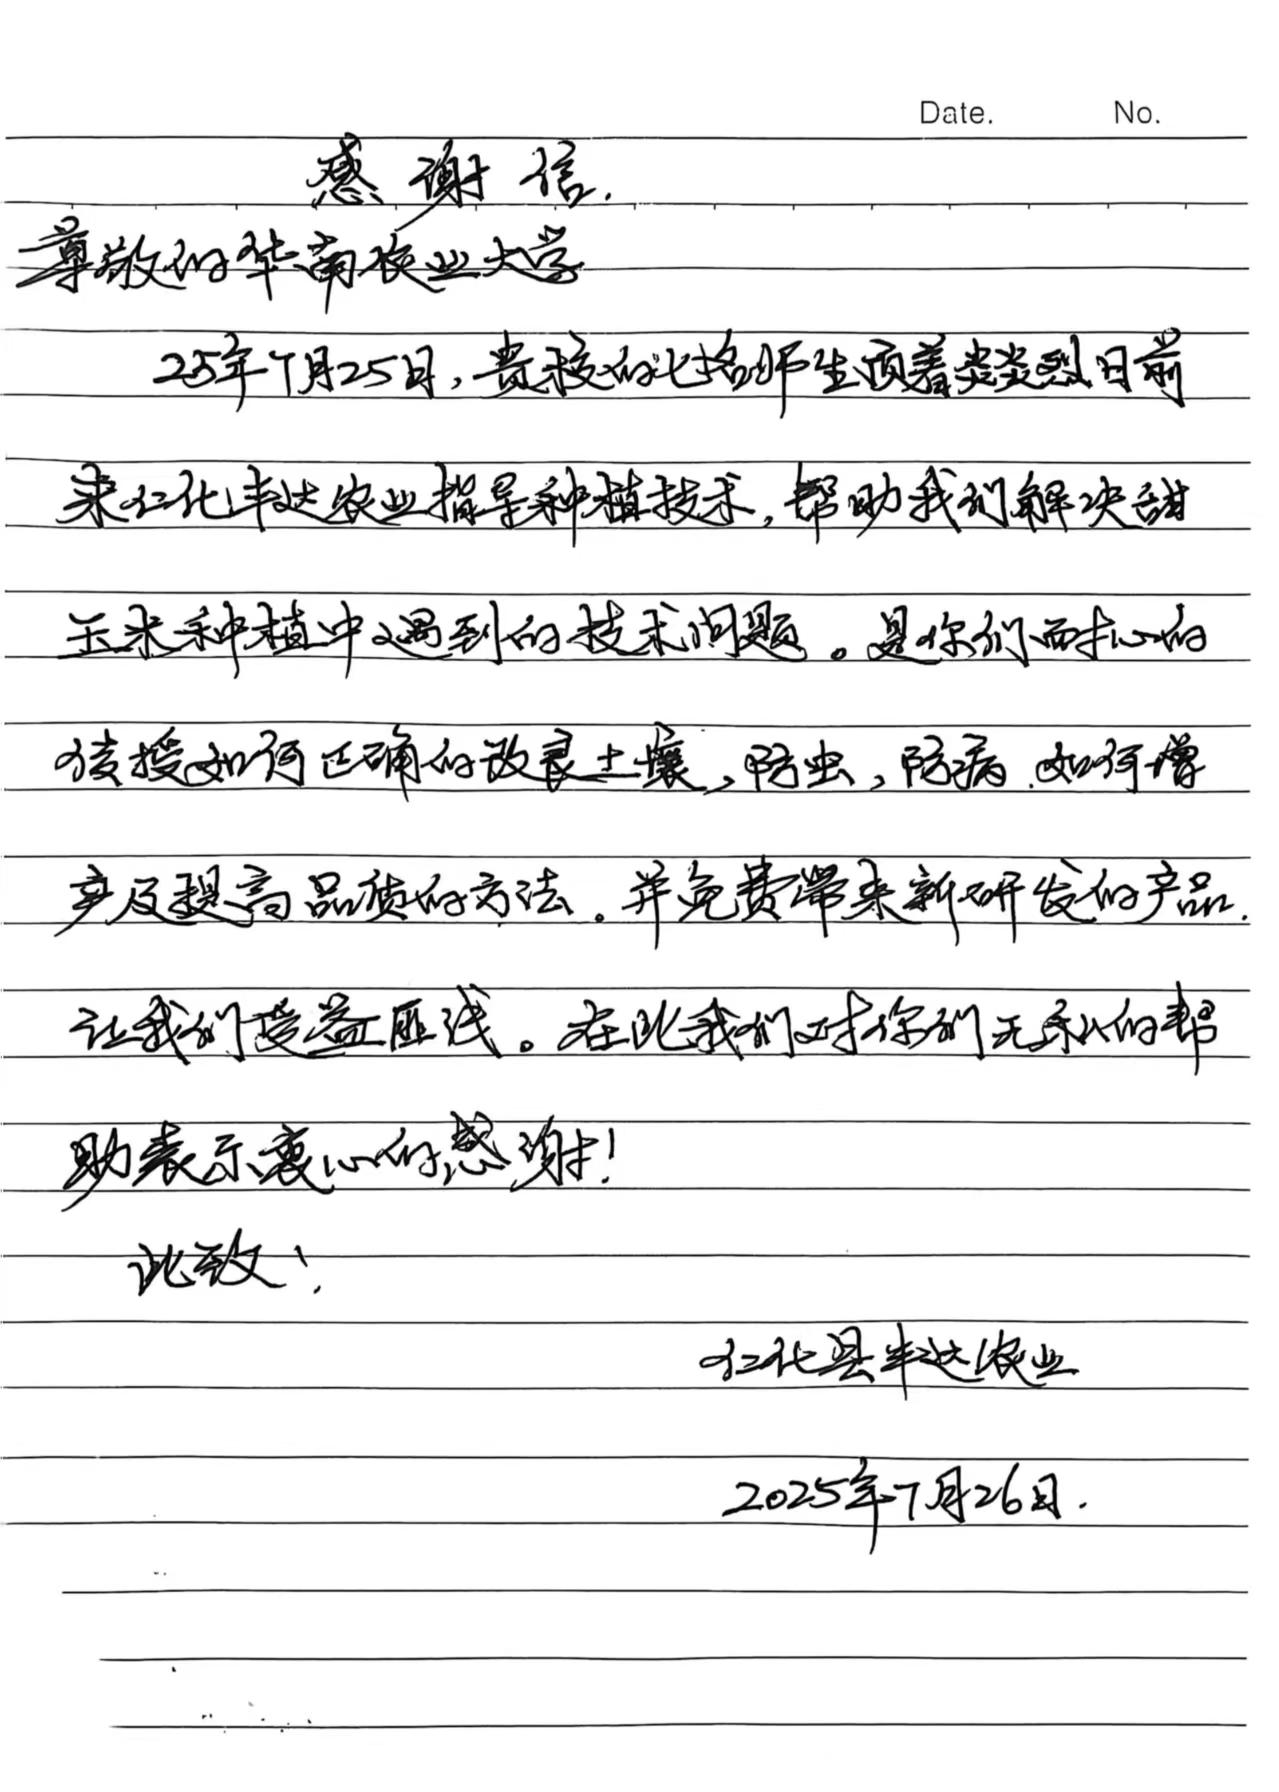 Date. No.
感谢信.
尊敬的华南农业大学
25年7月25日,贵校的七名师生顶着炎炎烈日前
来仁化丰达农业指导种植技术,帮助我们解决甜
玉米种植中遇到的技术问题。是你们耐心的
传授如何正确的改良土壤,防虫,防病.如何增
产及提高品质的方法。并免费带来新研发的产品.
让我们受益匪浅。在此我们对你们无私的帮
助表示衷心的感谢!
此致!
仁化县丰达农业
2025年7月26日.